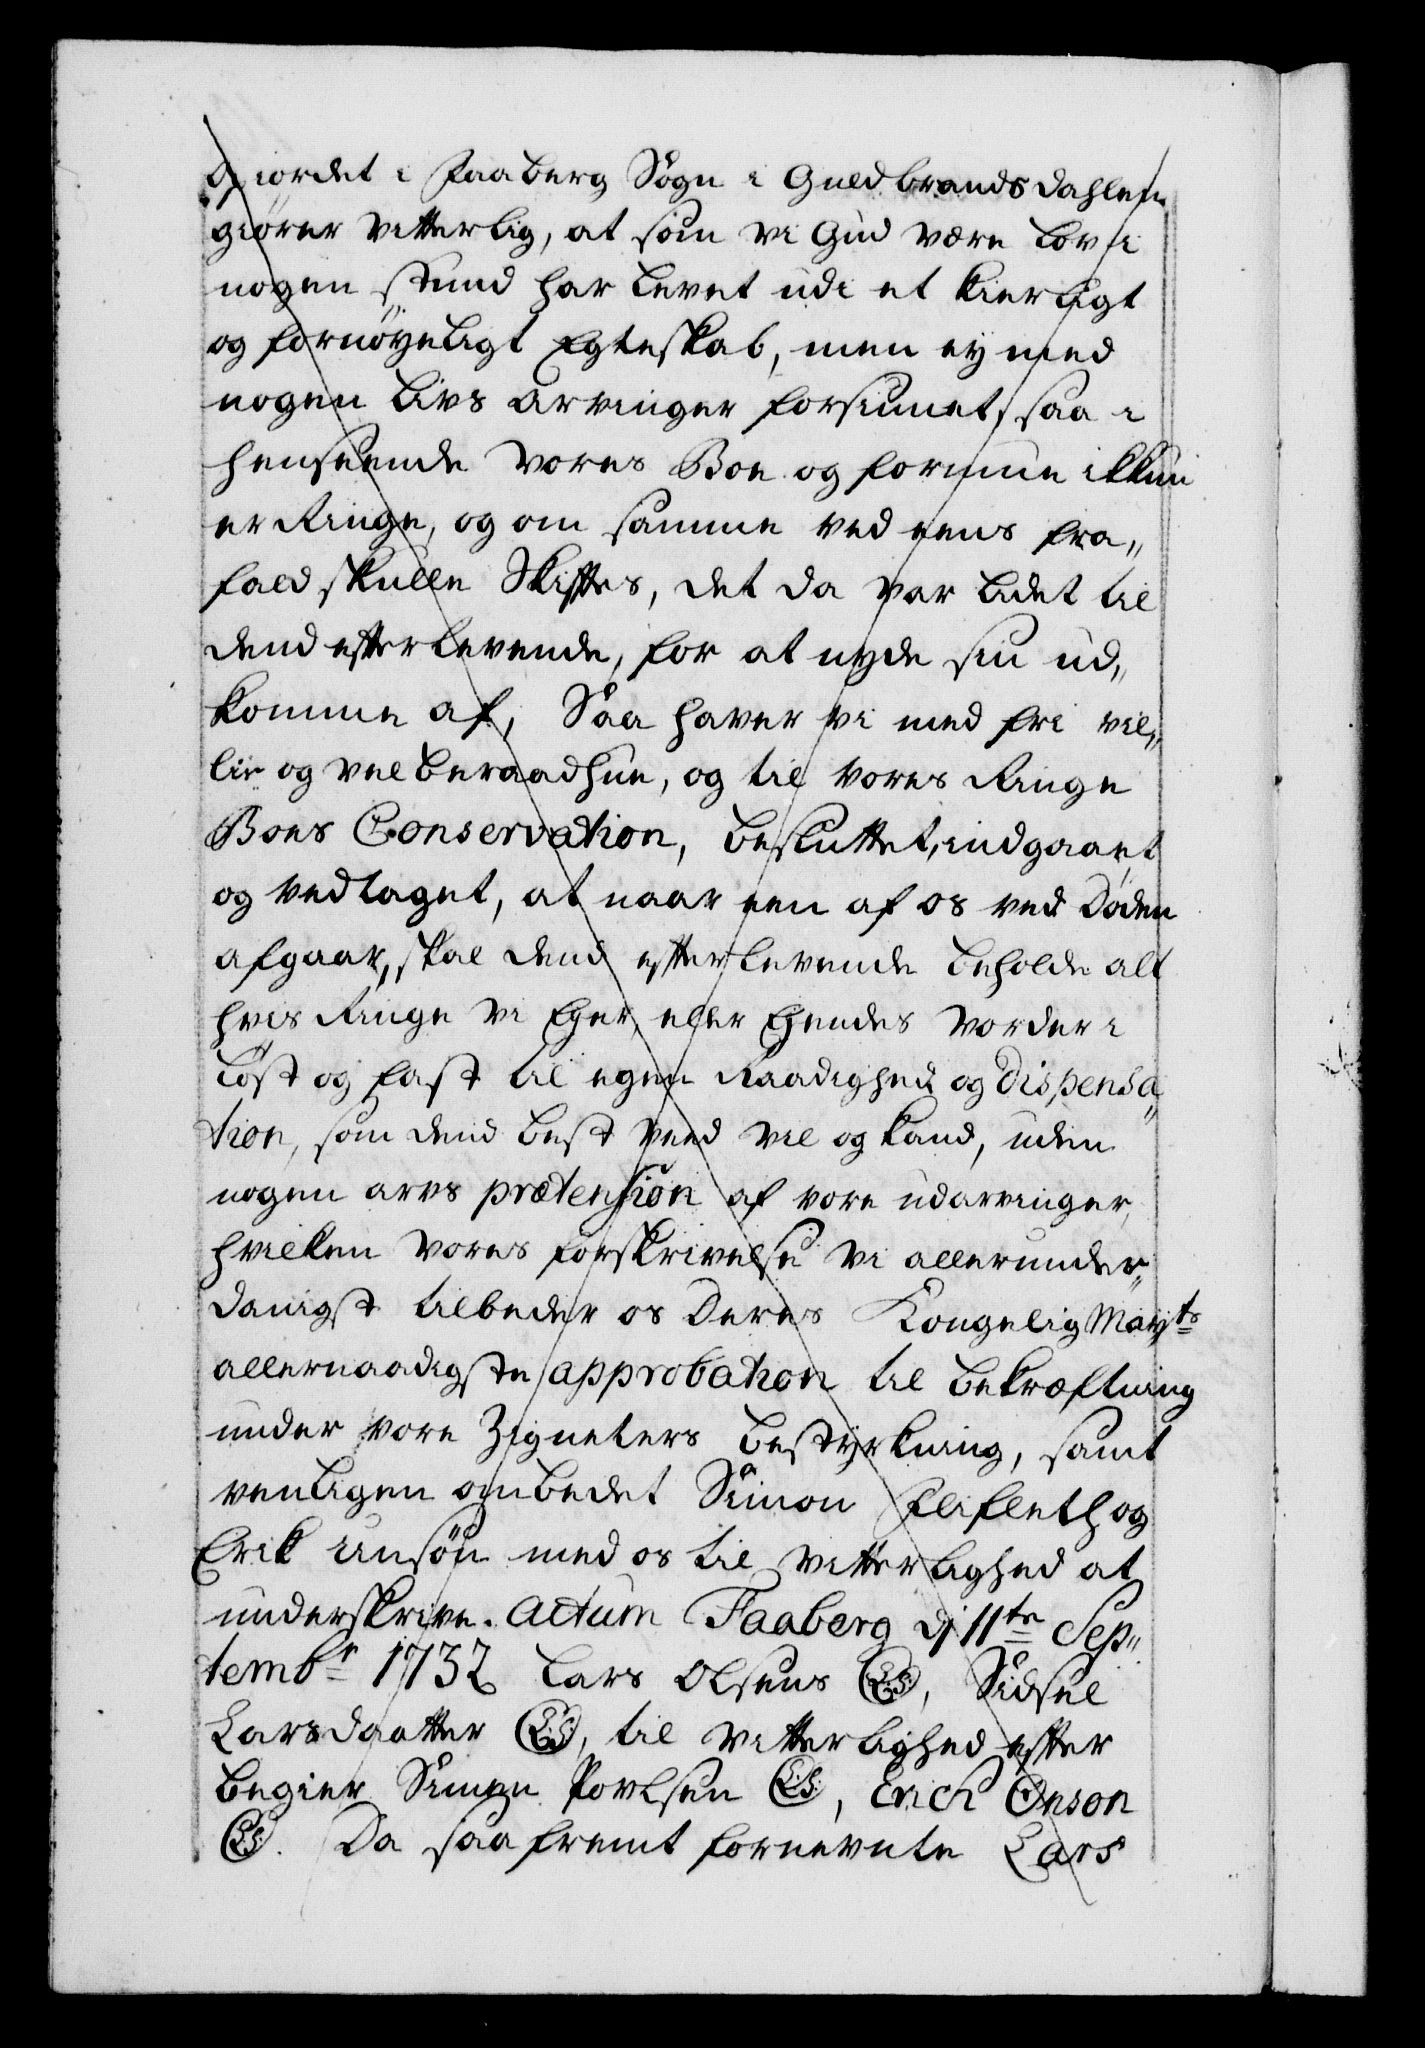 Giordet i Faaberg Sogn i Guldbrandsdahlen
giører vitterlig, at som vi Gud være lov i
nogen stund har levet udi et kierligt
og fornøyeligt Egteskab, men ey med
nogen livs arvinger forsiunet, saa i
henseende vores Boe og formue ikkun
er Ringe, og om samme ved eens fra„
fald skulle Skiftes, det da var lidet til
dend efterlevende, for at nyde sin ud„
komme af, Saa haver vi med fri vil„
lie og velberaadhue, og til vores Ringe
Boes Conservation, besluttet, indgaaet
og vedtaget, at naar een af os ved Døden
afgaar, skal dend efterlevende beholde alt
hvis Ringe vi Eger, eller Eyendes vorder i
løst og fast til egen Raadighed og dispensa„
tion, som dend best veed vil og kand, uden
nogen arvs prætension af vore udarvinger,
hvilken vores forskrivelse vi allerunder„
danigst tilbeder os Deres Kongelig Mayts
allernaadigste approbation til bekræftning
under vore Zigneters bestyrkning, samt
venligen ombedet Simon Flifleth og
Erik unsøn med os til vitterlighed at
underskrive. Actum Faaberg dj 11te Sep„
tembr 1732 Lars Olsens (L.S.), Sidsel
Larsdaatter (L.S.), til vitterlighed efter
begier Simen Povlsen (L.S.), Erich Onson
(L.S.). Da saafremt fornevnte Lars